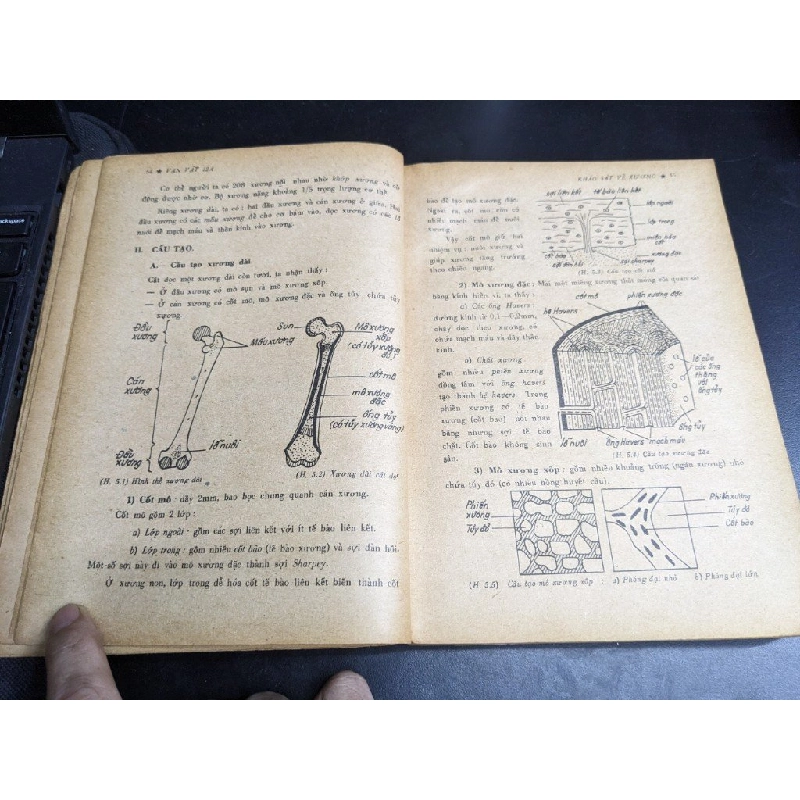 54 ★ VẠN VẬT 12A
Cơ thể người ta có 208 xương nối nhau nhờ khớp xương và cử
động được nhờ cơ. Bộ xương nặng khoảng 1/5 trọng lượng cơ thể.
Riêng xương dài, ta có : hai đầu xương và cán xương ở giữa. Hai
đầu xương có các mấu xương để cho cơ bám vào, dọc xương có các lỗ
nuôi để mạch máu và thần kinh vào xương.
II. CẤU TẠO.
A. Cấu tạo xương dài
Cắt dọc một xương dài còn tươi, ta nhận thấy :
— Ở đầu xương có mô sụn và mô xương xốp
— Ở cán xương có cốt mô, mô xương đặc và ống tủy chứa tủy
xương
Đầu xương
Mấu xương
Cán xương
Đầu xương
lỗ nuôi
Sụn
Mô xương xốp (có tủy xương đỏ)
cốt mô
mô xương đặc
ống tủy (có tủy xương vàng)
(H. 5.1) Hình thể xương dài
(H. 5.2) Xương dài cắt dọc
1) Cốt mô : dày 2mm, bao bọc chung quanh cán xương.
Cốt mô gồm 2 lớp :
a) Lớp ngoài : gồm các sợi liên kết với ít tế bào liên kết.
b) Lớp trong : gồm nhiều cốt bào (tế bào xương) và sợi đàn hồi.
Một số sợi này đi vào mô xương đặc thành sợi Sharpey.
Ở xương non, lớp trong dễ hóa cốt tế bào liên kết biến thành cốt
KHẢO SÁT VỀ XƯƠNG ★
bào để tạo mô xương đặc.
Ngoài ra, cốt mô còn có
nhiều mạch máu để nuôi
xương.
Vậy cốt mô giữ hai
nhiệm vụ : nuôi xương và
giúp xương tăng trưởng
theo chiều ngang.
sợi liên kết
tế bào liên kết
lớp ngoài
lớp trong
mạch máu
cốt bào
xương đặc
sợi sharpey
(H. 5.3) Cấu tạo cốt mô
2) Mô xương đặc : Mài một miếng xương thật mỏng rồi quan sát
bằng kính hiển vi, ta thấy :
a) Các ống Havers :
đường kính từ 0,1—0,2mm,
chạy dọc theo xương, có
chứa mạch máu và dây thần
kinh.
b) Chất xương
gồm nhiều phiến xương
đồng tâm với ống havers
tạo thành hệ havers. Trong
phiến xương có tế bào
xương (cốt bào) nối nhau
bằng những sợi tế bào
chất. Cốt bào không sinh
sản.
hệ Havers
cốt mô
phiến xương đặc
lỗ của các ống thông với ống tủy
ống tủy
lỗ nuôi
ống Havers
mạch máu
(H. 5.4) Cấu tạo xương đặc
3) Mô xương xốp : gồm nhiều khoảng trống (ngăn xương) nhỏ
chứa tủy đỏ (có nhiều hồng huyết cầu).
Phiến xương
Tủy đỏ
Phiến xương
Tủy đỏ
Cốt bào
(H. 5.5) Cấu tạo mô xương xốp : a) Phóng đại nhỏ b) Phóng đại lớn.